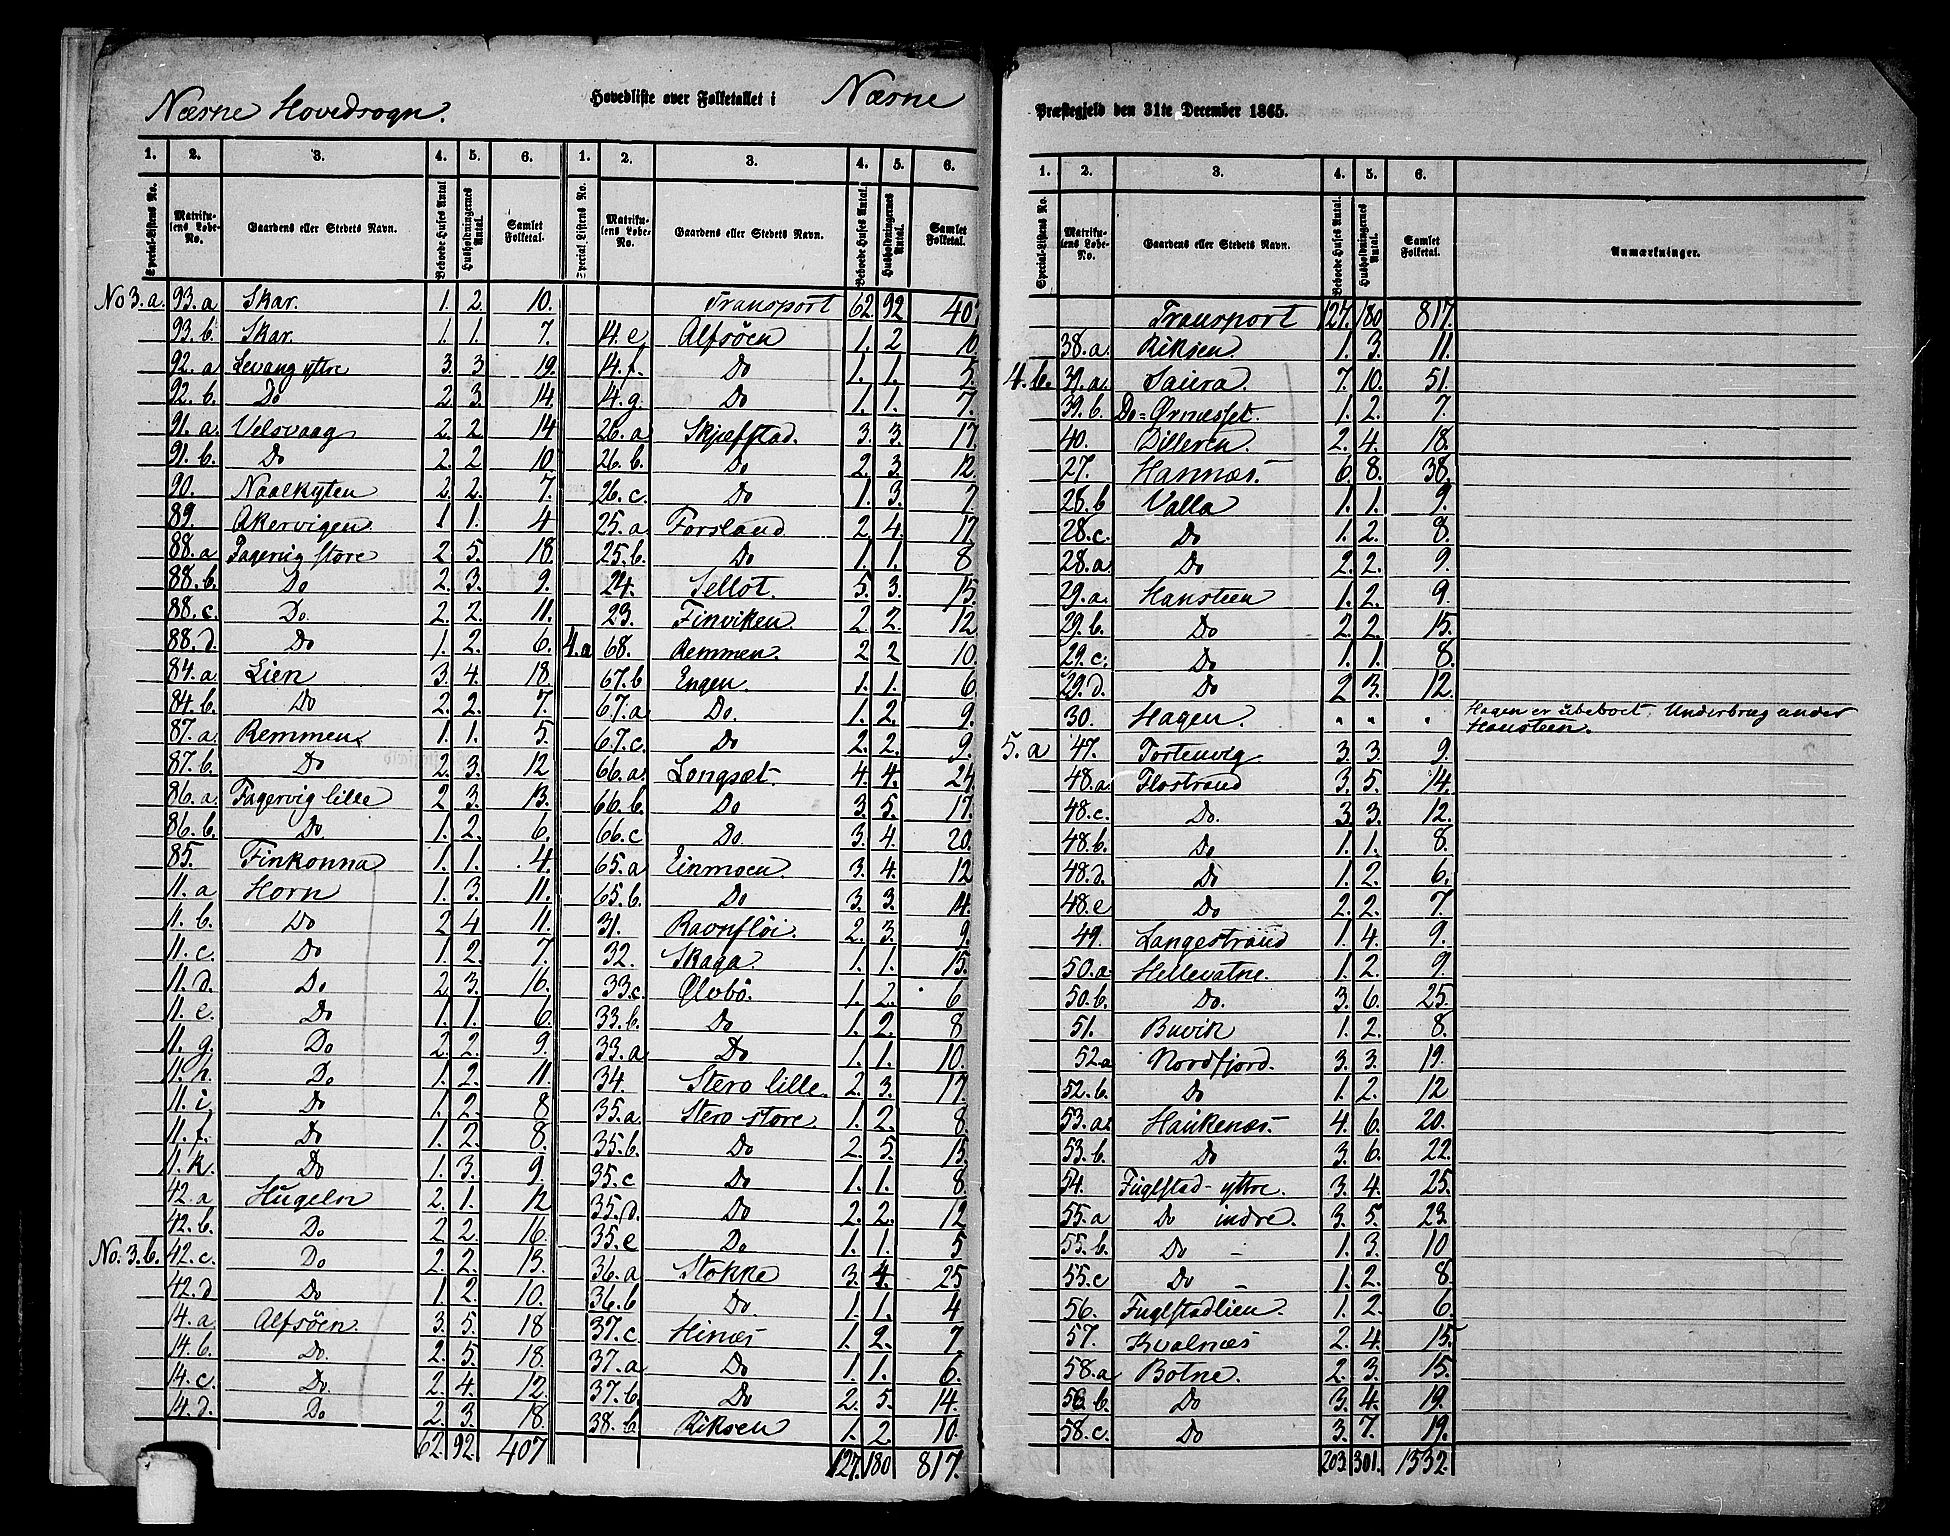 Næsne Hovedsogn.
Hovedliste over Folketallet i Næsne
Præstegjeld den 31te December 1865.
1. 2. 3. 4. 5. 6. 1. 2. 3. 4. 5. 6.
Special-Listens No. Matrikulens Løbe-No. Gaardens eller Stedets Navn. Beboede Huses Antal Husholdningernes Antal. Samlet Folketal. Special-Listens No. Matrikulens Løbe-No. Gaardens eller Stedets Navn. Beboede Huses Antal. Husholdningernes Antal. Samlet Folketal.
No 3.a. 93.a Skar. 1. 2. 10.
93.b. Skar. 1. 1. 7.
92.a Levang yttre 3. 3 19.
92.b. Do 2. 3. 14.
91.a Velsvaag 2. 2 14
91.b. Do 2. 2 10
90. Naalkyten 2. 2. 7.
89. Akervigen 1 1. 4
88.a Fagervig store 2. 5. 18.
88.b. Do 2. 3. 9.
88.c. Do. 2. 2. 11.
88.d. Do 1. 2. 6.
84.a. Lien 3. 4. 18.
84.b. Do 2. 2. 7.
87.a. Remmen 1. 1. 5.
87.b. Do 2. 3. 12
86.a. Fagervig lille 2 3. 13.
86.b. Do. 1. 2. 6.
85. Finkonna 1. 1. 4
11.a Horn 1. 3. 11.
11.b. Do 2 4 11.
11.c. Do 1. 2. 7.
11.d. Do 2. 3. 16.
11.e. Do 1. 1. 6.
11.g. Do 2. 2. 9.
11.h. Do 1. 2. 11.
11.i. Do 1. 2. 8
11.f. Do 1. 2. 8.
11.k. Do 1. 3. 9
42.a Hugeln 2. 1. 12
42.b. Do 2 2. 16.
No. 3.b. 42.c. Do 2. 2. 13.
42.d Do 1. 2. 10.
14.a. Alfsöen. 3. 5. 18
14.b. Do. 2. 5. 18.
14.c. Do 2. 4. 12.
14.d. Do 2. 3. 18.
62. 92. 407
Transport 62. 92. 407
14.e. Alfsöen 1. 2 10
14.f. Do 1. 1. 5.
14.g. Do 1. 1. 7.
26.a Skjæfstad. 3. 3. 17.
26.b. Do 2. 3. 12.
26.c. Do 1. 3. 7
25.a Forsland 2. 4. 17
25.b. Do 1. 1. 8
24. Sellot. 5. 3. 15.
23. Finviken. 2. 2. 12
4.a 68. Remmen. 2. 2 10.
67.b Engen. 1. 1. 6
67.a Do. 1. 2. 9.
67.c. Do 2. 2. 9.
66.a. Longsæt. 4. 4. 24.
66.b. Do 3. 5. 17.
66.c Do. 3. 4. 20.
65.a Einmoen. 3. 4. 12
65.b. Do 3. 3. 14.
31. Ravnflöi. 2. 3. 9.
32. Skaga. 1. 1. 15.
33.c. Qvobö. 1. 2. 6
33.b. Do 1. 2. 8
33.a Do 1. 1. 10.
34. Stero lille. 2. 3. 17.
35.a. Stero store. 1. 2. 8.
35.b Do 2. 5. 15.
35.c Do 1. 1. 8.
35.d. Do 2. 2. 12
35.e Do 1. 1. 5
36.a Stokke 3. 4. 25
36.b Do. 1. 1. 4
37.c. Hinæs 1. 2. 7
37.a Do 1. 1. 6.
37.b Do 2. 5. 14.
38.b Riksen 1. 2. 10.
127. 180 817.
1. 2. 3. 4. 5. 6.
Special-Listens No. Matrikulens Løbe-No. Gaardens eller Stedets Navn. Beboede Huses Antal. Husholdningernes Antal. Samlet Folketal. Anmærkninger.
Transport 127. 180 817.
38.a. Riksen. 1. 3. 11.
4.b. 39.a. Saura. 7. 10. 51.
39.b. Do = Ørnesset. 1. 2. 7.
40. Dilleren. 2. 4. 18.
27. Hannæs. 6. 8. 38.
28.b Valla 1. 1. 9.
28.c. Do 1. 2. 8.
28.a Do 2. 2. 9.
29.a. Hansteen 1. 2. 9.
29.b. Do 2. 2. 15.
29.c. Do 1. 1. 8.
29.d. Do 2 3. 12.
30. Hagen. " " " Hagen er übeboet. Underbrug under
Hansteen.
5.a 47. Tortenvig 3. 3. 9.
48.a. Flostrand 3. 5. 14.
48.c. Do. 3. 3. 12.
48.b. Do 1. 1. 8.
48.d. Do 1. 2. 6.
48.e Do 2. 2. 7.
49. Langestrand 1. 4. 9.
50.a. Hellevatne. 1. 2. 9.
50.b. Do. 3. 6. 25.
51. Buvik 1. 2. 8.
52.a Nordfjord. 3. 3. 19.
52.b. Do 1. 2. 12
53.a. Haukenæs. 4. 6. 20.
53.b. Do 3. 6. 22.
54. Fuglstad-yttre. 3. 4. 25.
55.a Do indre. 3. 5. 23.
55.b. Do - 1. 3. 10
55.c Do - 1. 2. 8.
56. Fuglstadlien. 1. 2. 6.
57. Kvalnæs 2. 4. 15.
58.a Botne. 2. 3. 15.
58.b Do 3. 4. 19.
58.c. Do 3. 7. 19.
203. 301. 1332.